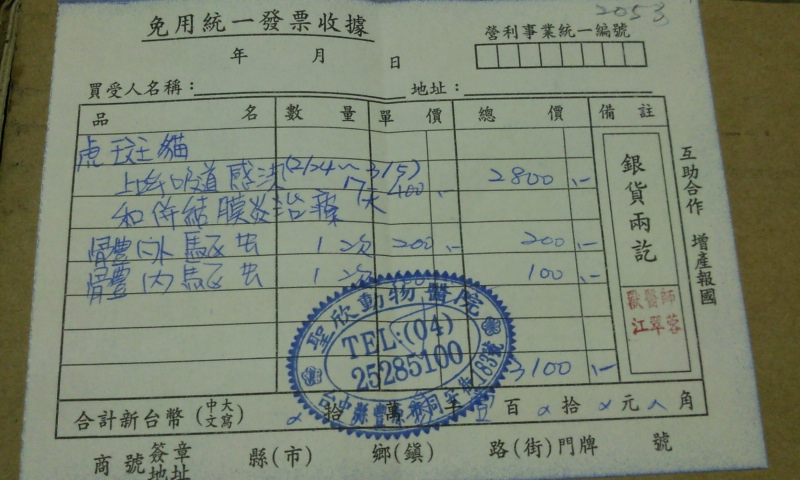 2053
免用統一發票收據
營利事業統一編號
年 月 日
買受人名稱： 地址：
品名 數量 單價 總價 備註
虎斑貓
上呼吸道感染(2/24~3/5) 400 2800.-
和併結膜炎治療 天
體外驅虫 1次 200.- 200.-
體內驅虫 1次 100.-
3100.-
銀貨兩訖
獸醫師
江翠蓉
互助合作 增產報國
聖欣動物醫院
TEL:(04)
25285100
台中縣豐原市同安街183號
合計新台幣(大寫中文) 拾萬仟百拾元角
商號簽章地址 縣(市) 鄉(鎮) 路(街)門牌 號